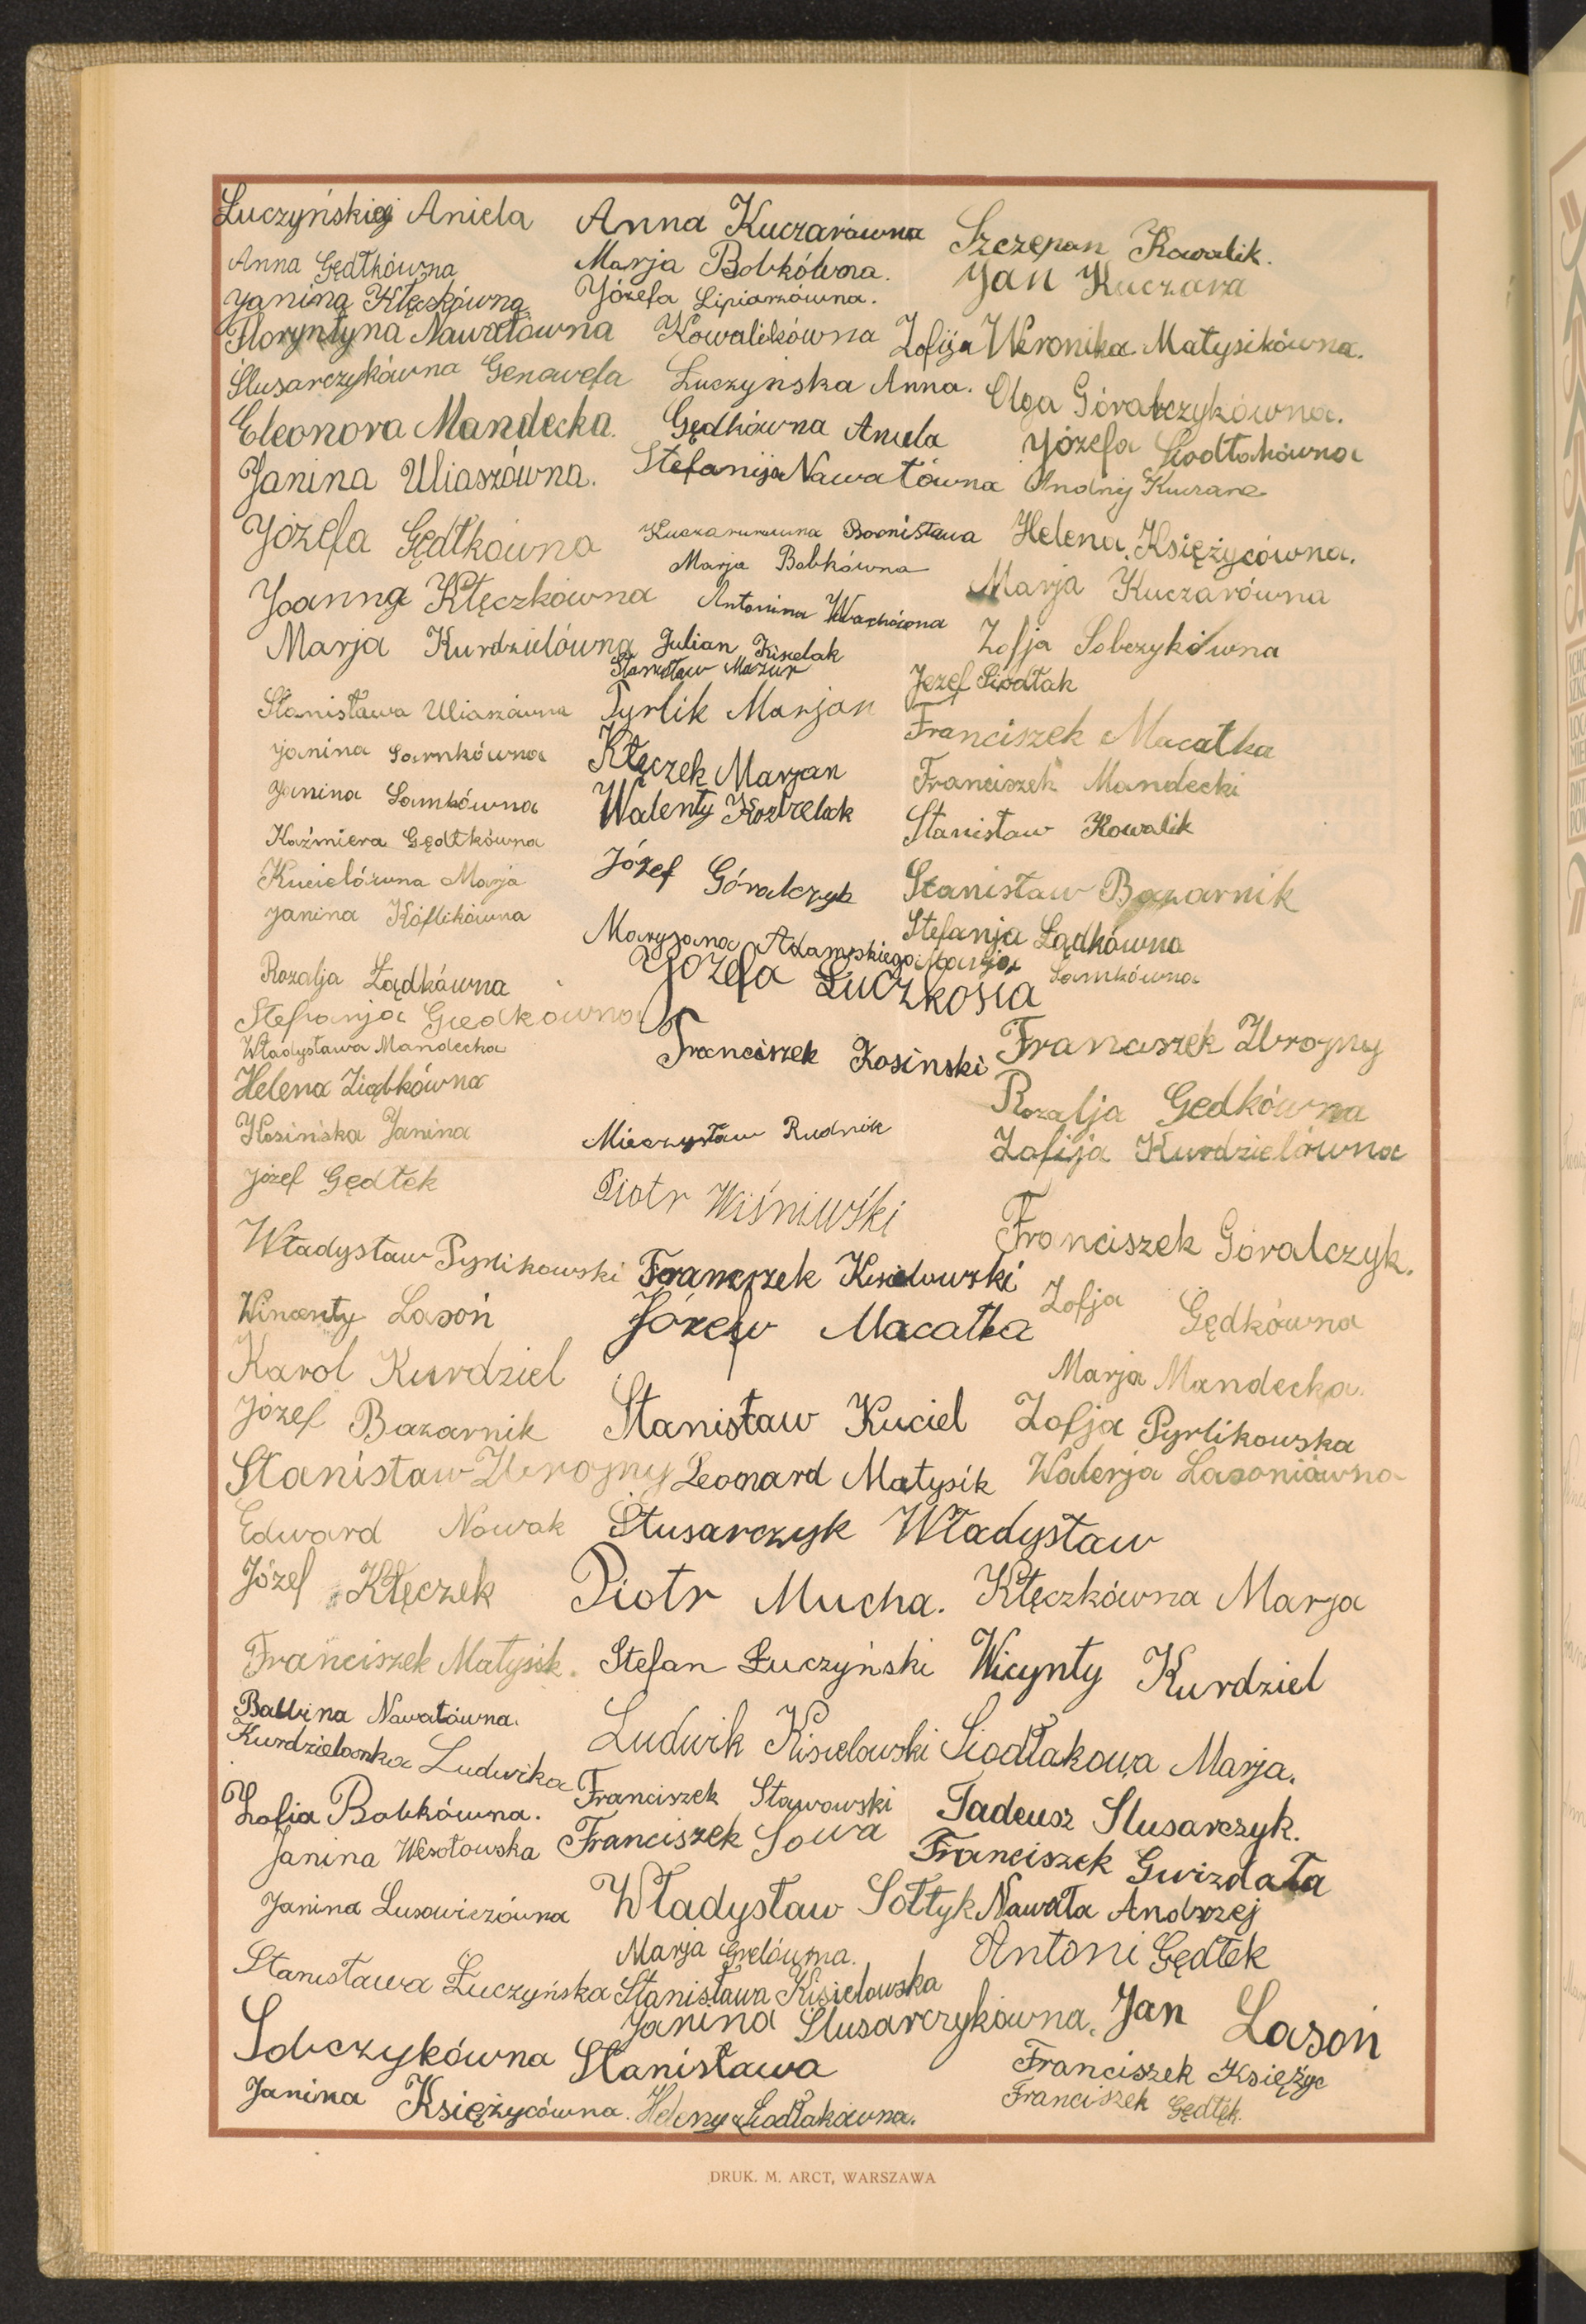 Łuczyńskiej Aniela
Anna Gędłkówna
Janina Kłęczkówna
Floryntyna Nawałówna
Ślusarczykówna Genowefa
Eleonora Mandecka.
Janina Uliaszówna.
Józefa Gędłkówna
Joanna Kłęczkówna
Marja Kurdzielówna
Stanisława Uliaszówna
Janina Sarnkówna
Janina Samkówna
Kaźmiera Gędłkówna
Kucielówna Marja
Janina Koflikówna
Rozalja Ządkówna
Stefanja Giedkówna
Władysława Mandecka
Helena Ziąbkówna
Kosińska Janina
Józef Gędłek
Władysław Pyrlikowski
Wincenty Lasoń
Karol Kurdziel
Józef Bazarnik
Stanisław Zbrojny
Edward Nowak
Józef Kłęczek
Franciszek Matysik.
Balbina Nawałówna.
Kurdzielanka Ludwika
Zofia Bobkówna.
Janina Wesołowska
Janina Lusowiczówna
Stanisława Łuczyńska
Sobczykówna Stanisława
Janina Księżycówna.
Anna Kuczarówna
Marja Bobkówna.
Józefa Lipiarzówna.
Kowalikówna Zofija
Łuczyńska Anna.
Gędłkówna Aniela
Stefanija Nawałówna
Bronisława
Marja Bobkówna
Antonina
Julian Kisielak
Stanisław Mazur
Pyrlik Marjan
Kłęczek Marjan
Walenty Koźbelak
Józef Góralczyk
Maryjana Adamskiego
Józefa Łuczkosia
Franciszek Kosinski
Mieczysław Rudnik
Piotr Wiśniwśki
Franciszek Kisielowski
Józefw Macałka
Stanisław Kuciel
Leonard Matysik
Ślusarczyk Władysław
Piotr Mucha.
Stefan Łuczyński
Ludwik Kisielowski
Franciszek Stawowski
Franciszek Sowa
Władysław Sołtyk
Marja Grelówma.
Stanisława Kisielowska
Janina Slusarczykówna.
Heleny Siodłakówna.
Szczepan Kowalik.
Jan Kuczara
Weronika Matysikówna.
Olga Góralczykówna.
Józefa Siodłakówna
Andrij Kuczara
Helena Księżycówna.
Marja Kuczarówna
Zofja Sobczykówna
Jezef Siodłak
Franciszek Macałka
Franciszek Mandecki
Stanisław Kowalik
Stanisław Bazarnik
Stefanja Ządkówna
Marija Samkówna
Franciszek Zbrojny
Rozalja Gedkówna
Zofija Kurdzielówna
Franciszek Góralczyk.
Zofja Gędkówna
Marja Mandecka.
Zofja Pyrlikowska
Walerja Lasoniówna
Kłęczkówna Marja
Wicynty Kurdziel
Siodłakowa Marja.
Tadeusz Slusarczyk.
Franciszek Gwizdała
Nawała Andrzej
Antoni Gędłek
Jan Lasoń
Franciszek Księżyc
Franciszek Gędłek.
DRUK. M. ARCT, WARSZAWA